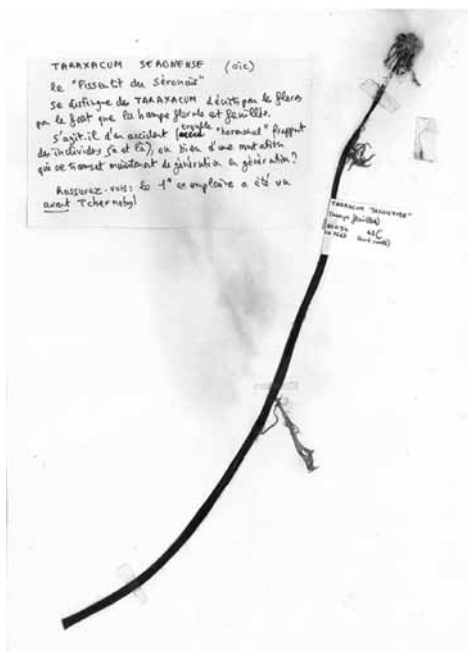 TARAXACUM SERONENSE (oïc)
le "Pissenlit du Séronais"
se distingue des TARAXACUM décrits par les flores
par le fait que la hampe florale est feuillée.
S'agit-il d'un accident (trouble "hormonal" frappant
des individus çà et là), ou bien d'une mutation
qui se transmet maintenant de génération en génération?
Rassurez-vous: le 1er exemplaire a été vu
avant Tchernobyl
TARAXACUM "SERONENSE"
(hampe feuillée)